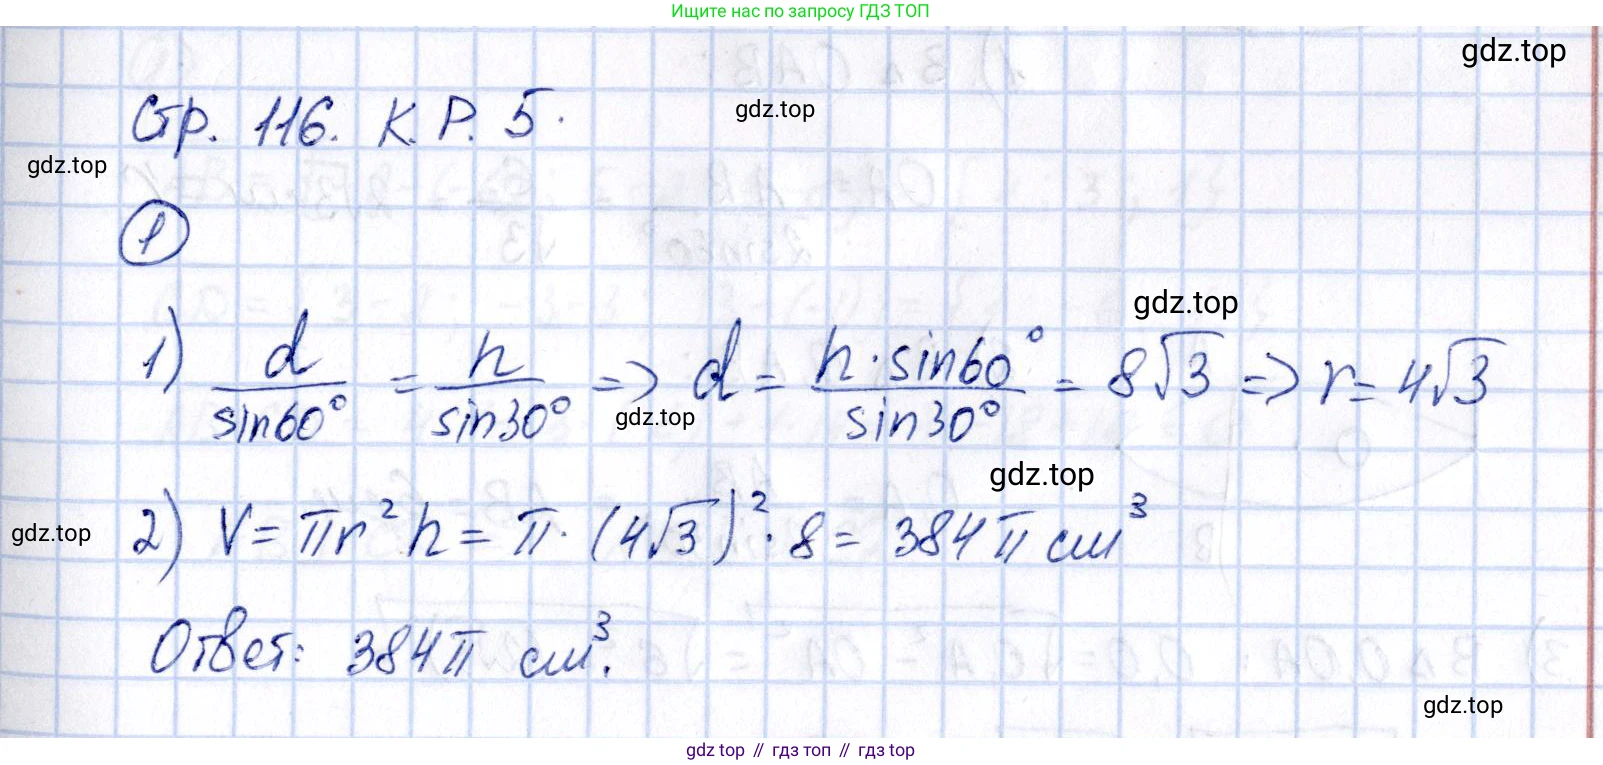 Ищите нас по запросу ГДЗ ТОП
gdz.top
Стр. 116. К.Р. 5.
gdz.top
gdz.top
1
gdz.top
1) d/sin60° = h/sin30° => d = h·sin60°/sin30° = 8√3 => r = 4√3
gdz.top
gdz.top
2) V = πr²h = π·(4√3)²·8 = 384π см³
gdz.top
Ответ: 384π см³.
gdz.top
gdz top // гдз топ // gdz top